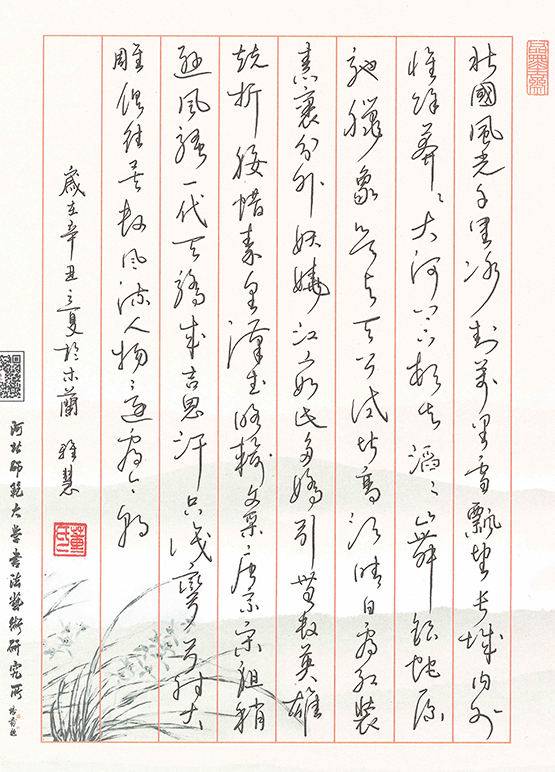 北國風光千里冰封萬里雪飄望長城內外
惟餘莽〻大河上下頓失滔〻山舞銀蛇原
馳蠟象欲与天公試比高須晴日看紅裝
素裹分外妖嬈江山如此多嬌引無數英雄
競折腰惜秦皇漢武略輸文采唐宗宋祖稍
遜風騷一代天驕成吉思汗只識彎弓射大
雕俱往矣數風流人物還看今朝
歲在辛丑立夏於木蘭 雅慧
董氏
河北師範大學書法藝術研究所